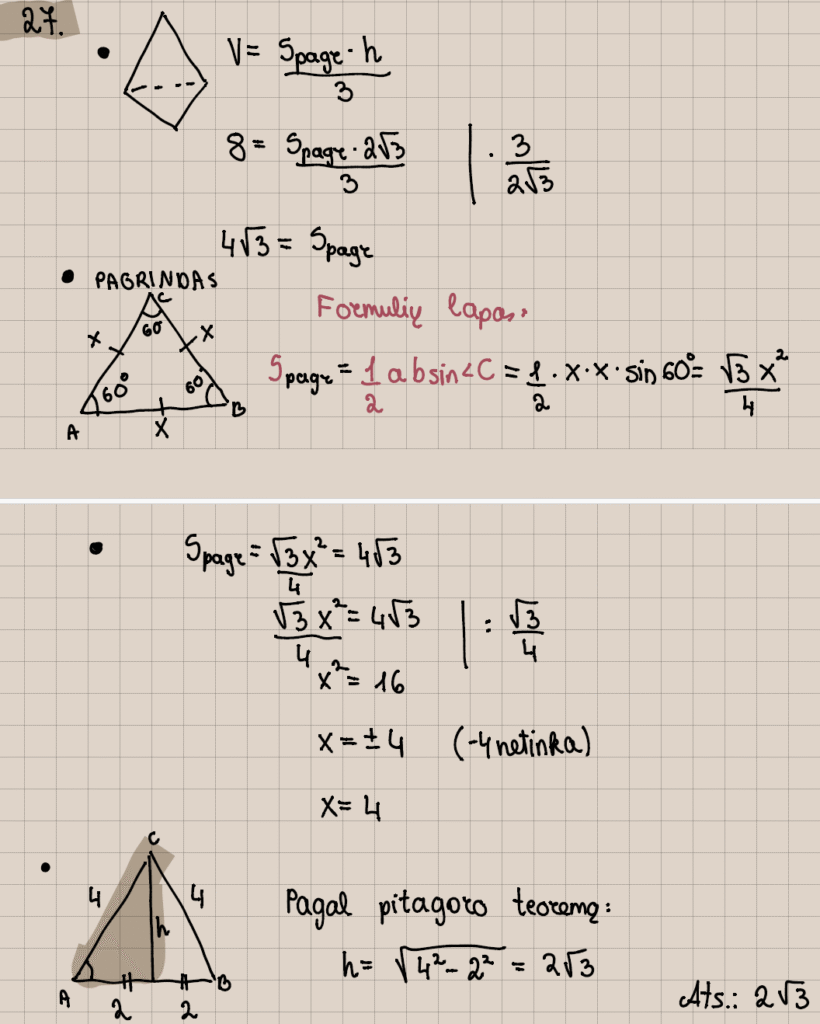 27.
V = Spagr · h / 3
8 = Spagr · 2√3 / 3 | · 3 / 2√3
4√3 = Spagr
PAGRINDAS
C
60
x x
60° 60°
A x B
Formulių lapas,
Spagr = 1/2 a b sin∠C = 1/2 · x · x · sin 60° = √3 x² / 4
Spagr = √3 x² / 4 = 4√3
√3 x² / 4 = 4√3 | : √3 / 4
x² = 16
x = ± 4 (-4 netinka)
x = 4
C
4 4
h
A 2 2 B
Pagal pitagoro teoremą:
h = √4² - 2² = 2√3
Ats.: 2√3